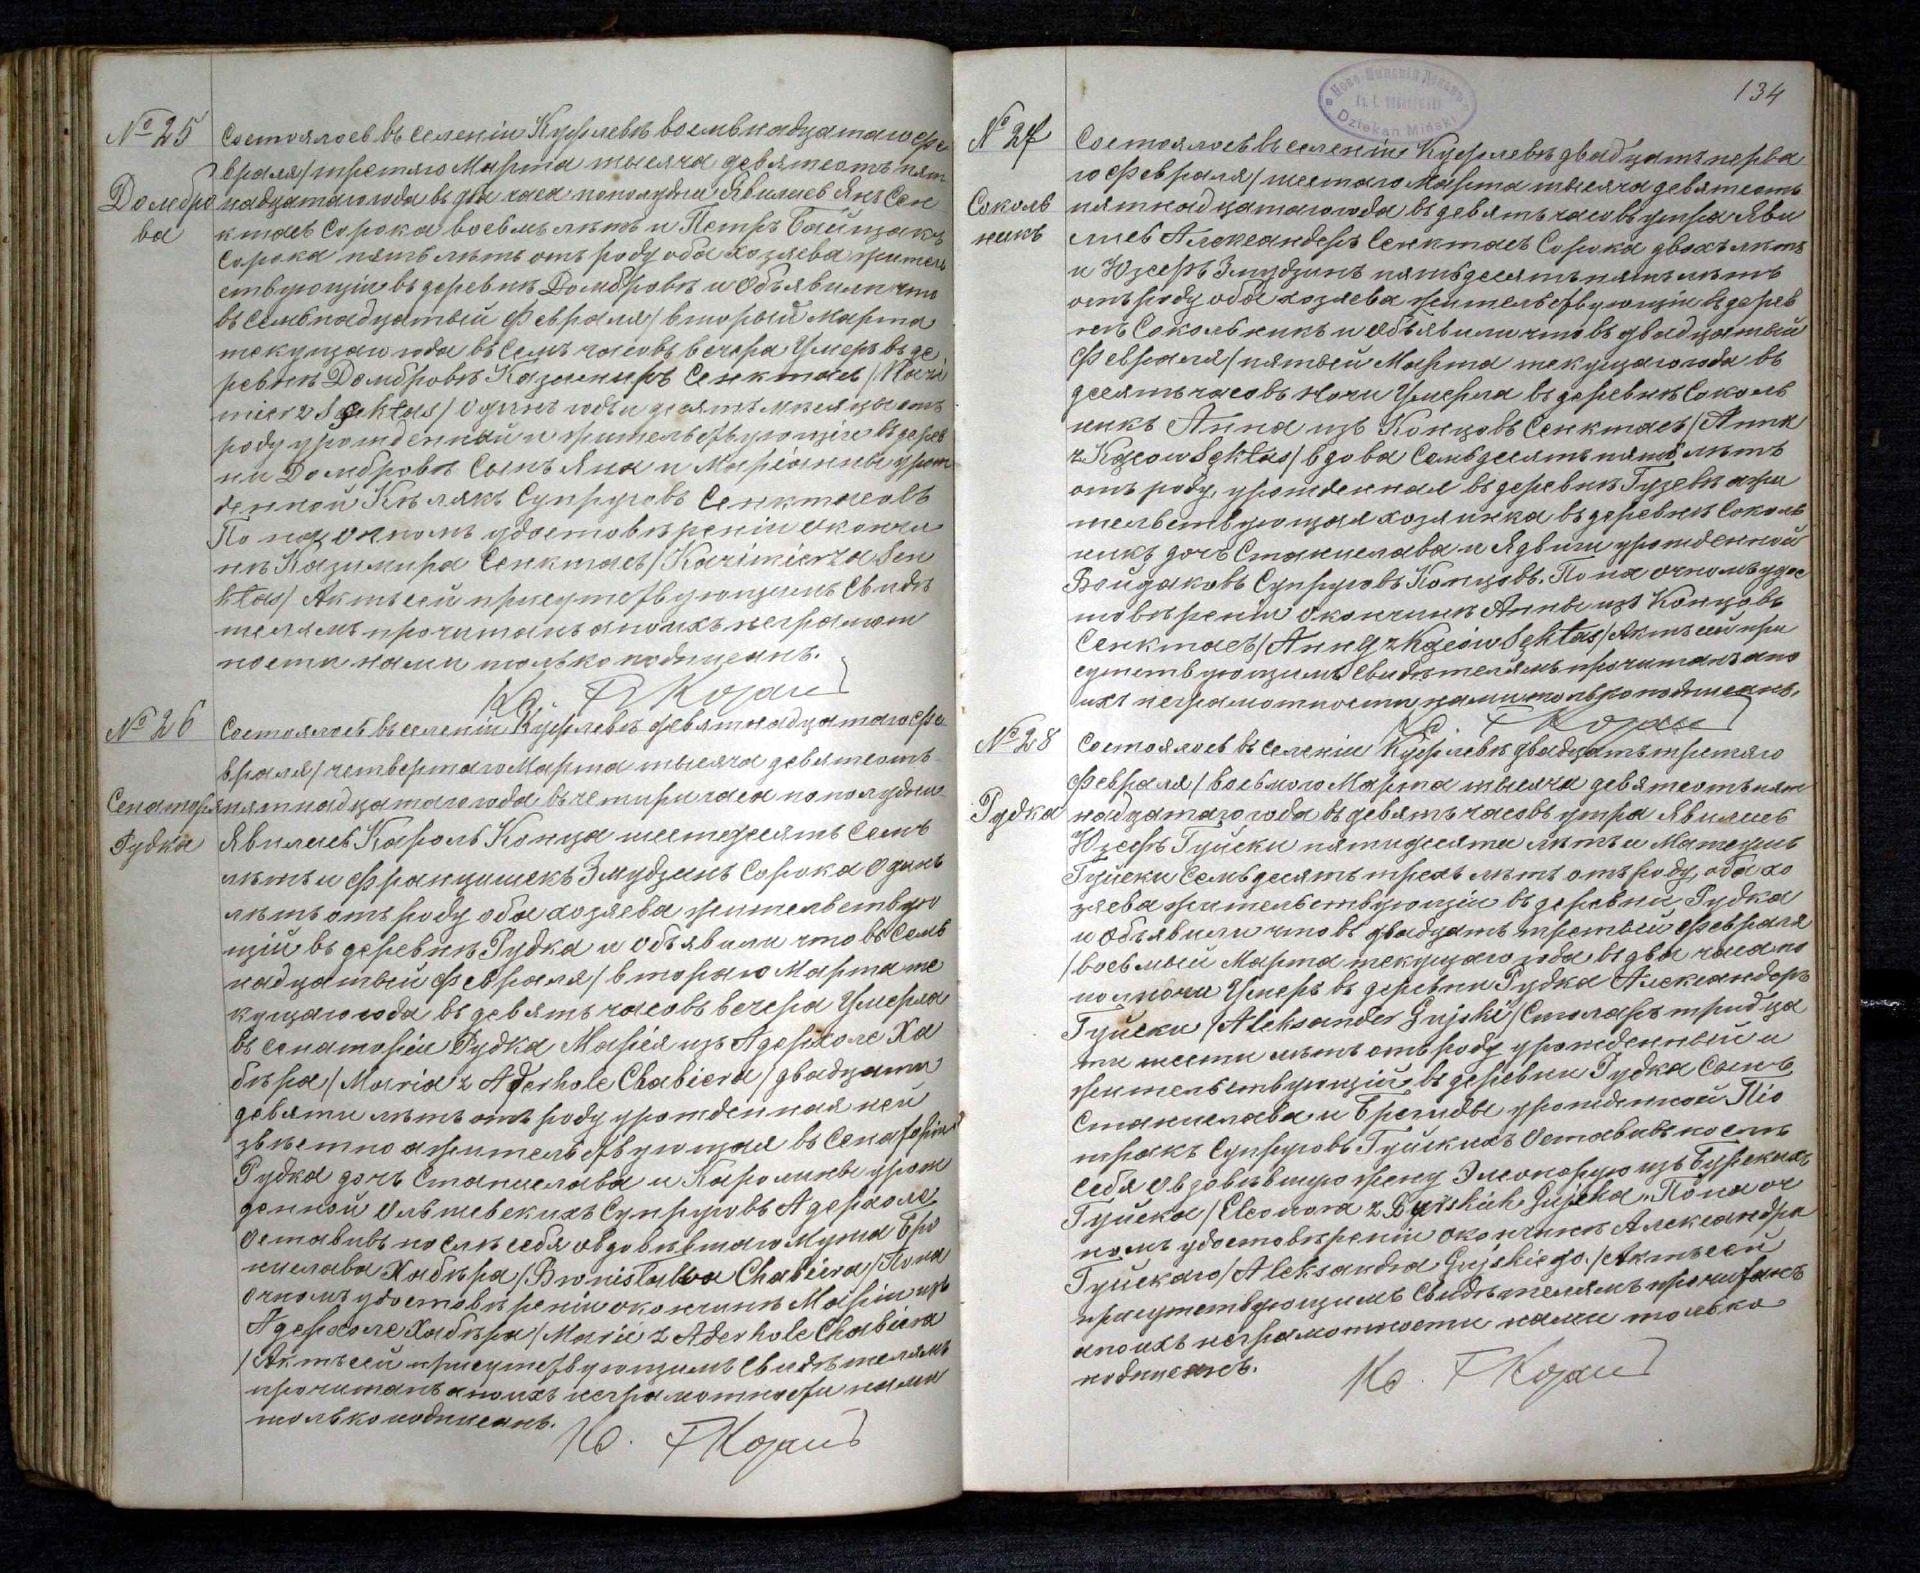 № 25
Домбро
ва
Состоялось въ селеніи Куфлевѣ восьмнадцатаго фе
враля/третяго Марта тысяча девятсотъ пят
надцатаго года въ два часа пополудни Явились Янъ Сен
ктасъ сорока восьмь лѣтъ и Петръ Байщакъ
сорока пять лѣтъ отъ роду оба хозяева житель
ствующіи въ деревнѣ Домбровѣ и Объявили что
въ семьнадцатый февраля/вторый Марта
текущаго года въ семъ часовъ вечера Умеръ въ де
ревнѣ Домбровѣ Казимиръ Сенктасъ/Kazi
mierz Sęktas/Одинъ годъ и десять мѣсяцы отъ
роду урожденный и жительствующій въ дерев
ни Домбровѣ Сынъ Яна и Маріанны урож
денной Кѣлякъ Супруговъ Сенктасовъ
По наочномъ удостовѣреніи о кончи
нѣ Казимира Сенктасъ/Kazimierza Sen
ktas/Актъ сей присутствующимъ свидѣ
телямъ прочитанъ а по ихъ неграмот
ности нами только подписанъ.
Кс. F Kozaus
№ 26
Сенаторія
Рудка
Состоялось въ селеніи Куфлевѣ девятнадцатаго фе
враля/четвертаго Марта тысяча девятсотъ
пятнадцатаго года въ четири часа пополудни
Явились Кароль Конца шестдесятъ семъ
лѣтъ и Францишекъ Змудзинъ сорока одинъ
лѣтъ отъ роду оба хозяева жительствую
щій въ деревнѣ Рудка и Объявили что въ семь
надцатый февраля/втораго Марта те
кущаго года въ девять часовъ вечера Умерла
въ сенаторіи Рудка Марія изъ Адерхоле Ха
бѣра/Maria z Aderhole Chabiera/двадцати
девяти лѣтъ отъ роду урожденная неи
звѣстно а жительствующая въ сенаторіи
Рудка дочь Станислава и Каролины урож
денной Ольшевскихъ Супруговъ Адерхоле
Оставивъ послѣ себя овдовѣвшаго мужа Бро
нислава Хабѣра/Bronisława Chabiera/По на
очномъ удостовѣреніи о кончинѣ Маріи изъ
Адерхоле Хабѣра/Marii z Aderhole Chabiera
/Актъ сей присутствующимъ свидѣтелямъ
прочитанъ а по ихъ неграмотности нами
только подписанъ.
Кс. F Kozaus
134
Dziekan Miński
№ 27
Соколь
никъ
Состоялось въ селеніи Куфлевѣ двадцать перва
го февраля/шестаго Марта тысяча девятсотъ
пятнадцатаго года въ девять часовъ утра Яви
лись Александеръ Сенктасъ сорока двохъ лѣтъ
и Юзефъ Змудзинъ пятьдесятъ пять лѣтъ
отъ роду оба хозяева жительствующіи въ дерев
нѣ Сокольникъ и объявили что въ двадцатый
февраля/пятый Марта текущаго года въ
десять часовъ ночи Умерла въ деревнѣ Соколь
никъ Анна изъ Концовъ Сенктасъ/Anna
z Kąców Sęktas/вдова семьдесятъ пять лѣтъ
отъ роду, урожденная въ деревнѣ Гузевѣ а жи
тельствующая хозяйка въ деревнѣ Соколь
никъ дочь Станислава и Ядвиги урожденной
Войдаковъ Супруговъ Концовъ. По на очномъ удос
товѣреніи о кончинѣ Анны изъ Концовъ
Сенктасъ/Anny z Kąców Sęktas/Актъ сей при
сутствующимъ свидѣтелямъ прочитанъ а по
ихъ неграмотности нами только подписанъ.
Кс. F Kozaus
№ 28
Рудка
Состоялось въ селеніи Куфлевѣ двадцать третяго
февраля/восьмого Марта тысяча девятсотъ пят
надцатаго года въ девять часовъ утра Явились
Юзефъ Гуйски пятидесяти лѣтъ и Матеушъ
Гуйски семьдесятъ трехъ лѣтъ отъ роду, оба хо
зяева жительствующіи въ деревни Рудка
и Объявили что въ двадцать третьи февраля
/восьмый Марта текущаго года въ два часа по
полночи Умеръ въ деревни Рудка Александеръ
Гуйски/Aleksander Gujski/Столяръ тридца
ти шести лѣтъ отъ роду урожденный и
жительствующій въ деревни Рудка Сынъ
Станислава и Брегиды урожденной Піо
тракъ Супруговъ Гуйскихъ Оставивъ послѣ
себя овдовѣвшую жену Элеонору изъ Бурскихъ
Гуйска/Eleonora z Burskich Gujska. По на оч
номъ удостовѣреніи о кончинѣ Александра
Гуйскаго/Aleksandra Gujskiego./Актъ сей
присутствующимъ свидѣтелямъ прочитанъ
а по ихъ неграмотности нами только
подписанъ.
Кс. F Kozaus